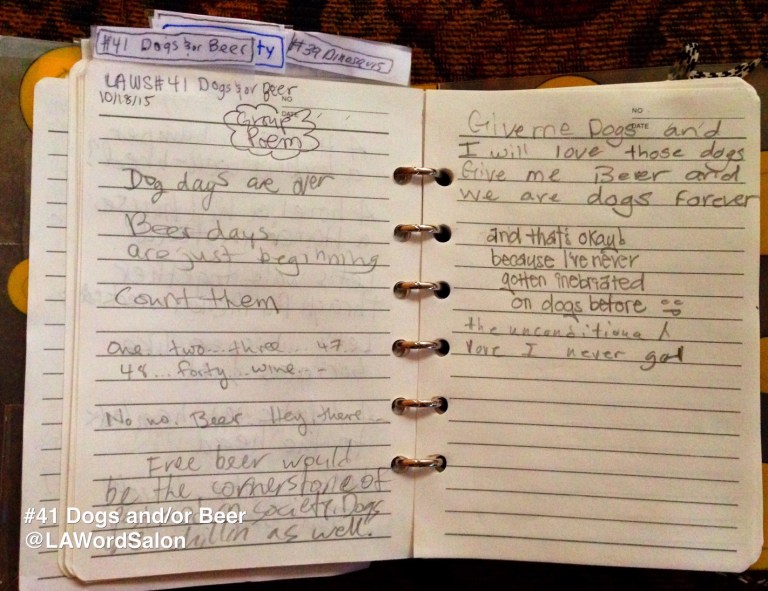 #41 Dogs &/or Beer
ty
#39 Dinosaurs
LAWS#41 Dogs &/or Beer
10/18/15
NO
DATE
Group
Poem
Dog days are over
Beer days,
are just beginning
Count them
One two... three... 47..
48... forty wine...
No no. Beer. Hey there...
Free beer would
be the cornerstone of
society. Dogs
as well.
NO
DATE
Give me Dogs and
I will love those dogs
Give me Beer and
we are dogs forever
and that's okay!
because I've never
gotten inebriated
on dogs before
the unconditional
love I never got
#41 Dogs and/or Beer
@LAWordSalon